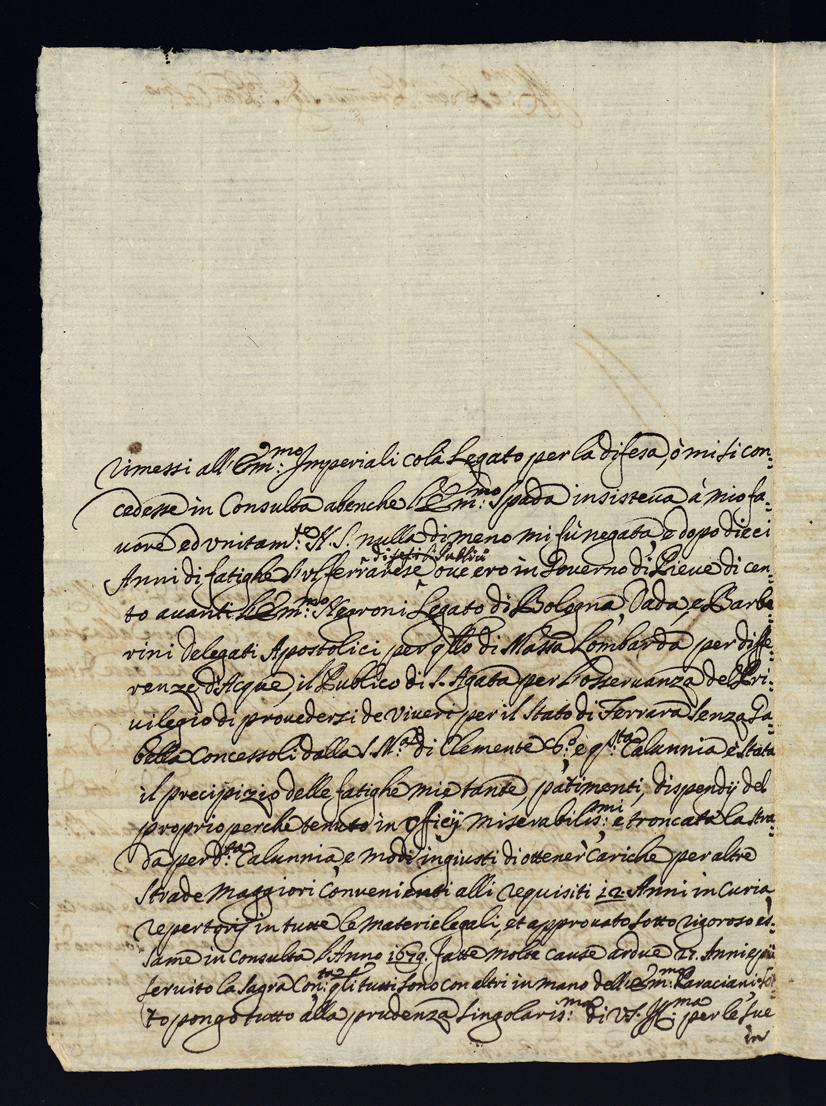 rimessi all' Em:mo Imperiali colà Legato per la difesa, ò mi si con:
cedesse in Consulta abenche l'Em:mo Spada insisteua à mio fa:
uore ed vnitam:te N. S. nulla di meno mi fù negata e dopo dieci
difesi li Publici
Anni di fatighe Sul ferrarese oue ero in Gouerno di Pieue di cen:
to auanti l'Em:mo Negroni Legato di Bologna, Dada, e Barbe
rini delegati Apostolici per qllo di Massa Lombarda per diffe:
renze d'Acque, il Publico di S. Agata per l'osseruanza del Pri:
uilegio di prouedersi de Viueri per il Stato di Ferrara senza Ga:
bella Concessoli dalla S. M:a di Clemente e q:sta Calunnia è stata
il precipizio delle fatighe mie tante, patimenti, dispendij del
proprio perche tenuto in officij miserabilis:mi e troncata la stra:
da per d:ta Calunnia, e modi ingiusti di ottener Cariche per altre
strade maggiori Conuenienti alli requisiti 12. Anni in Curia
repertorij in tutte le materie legali, et approuato sotto rigoroso es:
same in Consulta l'Anno 1679. fatte molte cause ardue 27. Anni e più
seruito la Sagra Con:ta qli tutti sono con altri in mano dell' Em:mo Paraciani
to pongo tutto alla prudenza singolaris:ma di VS. Ill:ma per le sue
in